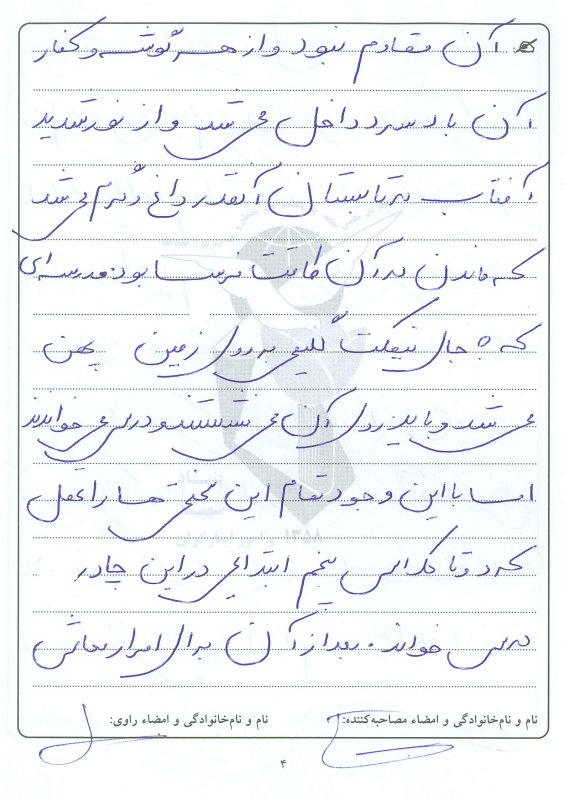 آن مقادم نبود و از هر گوشه و کنار
آن باد سرد داخل می شد و از نور شدید
آفتاب در تابستان آنقدر داغ و گرم می شد
که ماندن در آن طاقت فرسا بود. مدرسه ای
که به جای نیمکت گلیمی بر روی زمین پهن
می شد و باید روی آن می نشستند و درس می خواندند
اما با این وجود تمام این سختی ها را تحمل
کرد و تا کلاس پنجم ابتدایی در این چادر
درس خواند. بعد از آن برای امرار معاش
نام و نام‌خانوادگی و امضاء مصاحبه‌کننده:
نام و نام‌خانوادگی و امضاء راوی:
۴